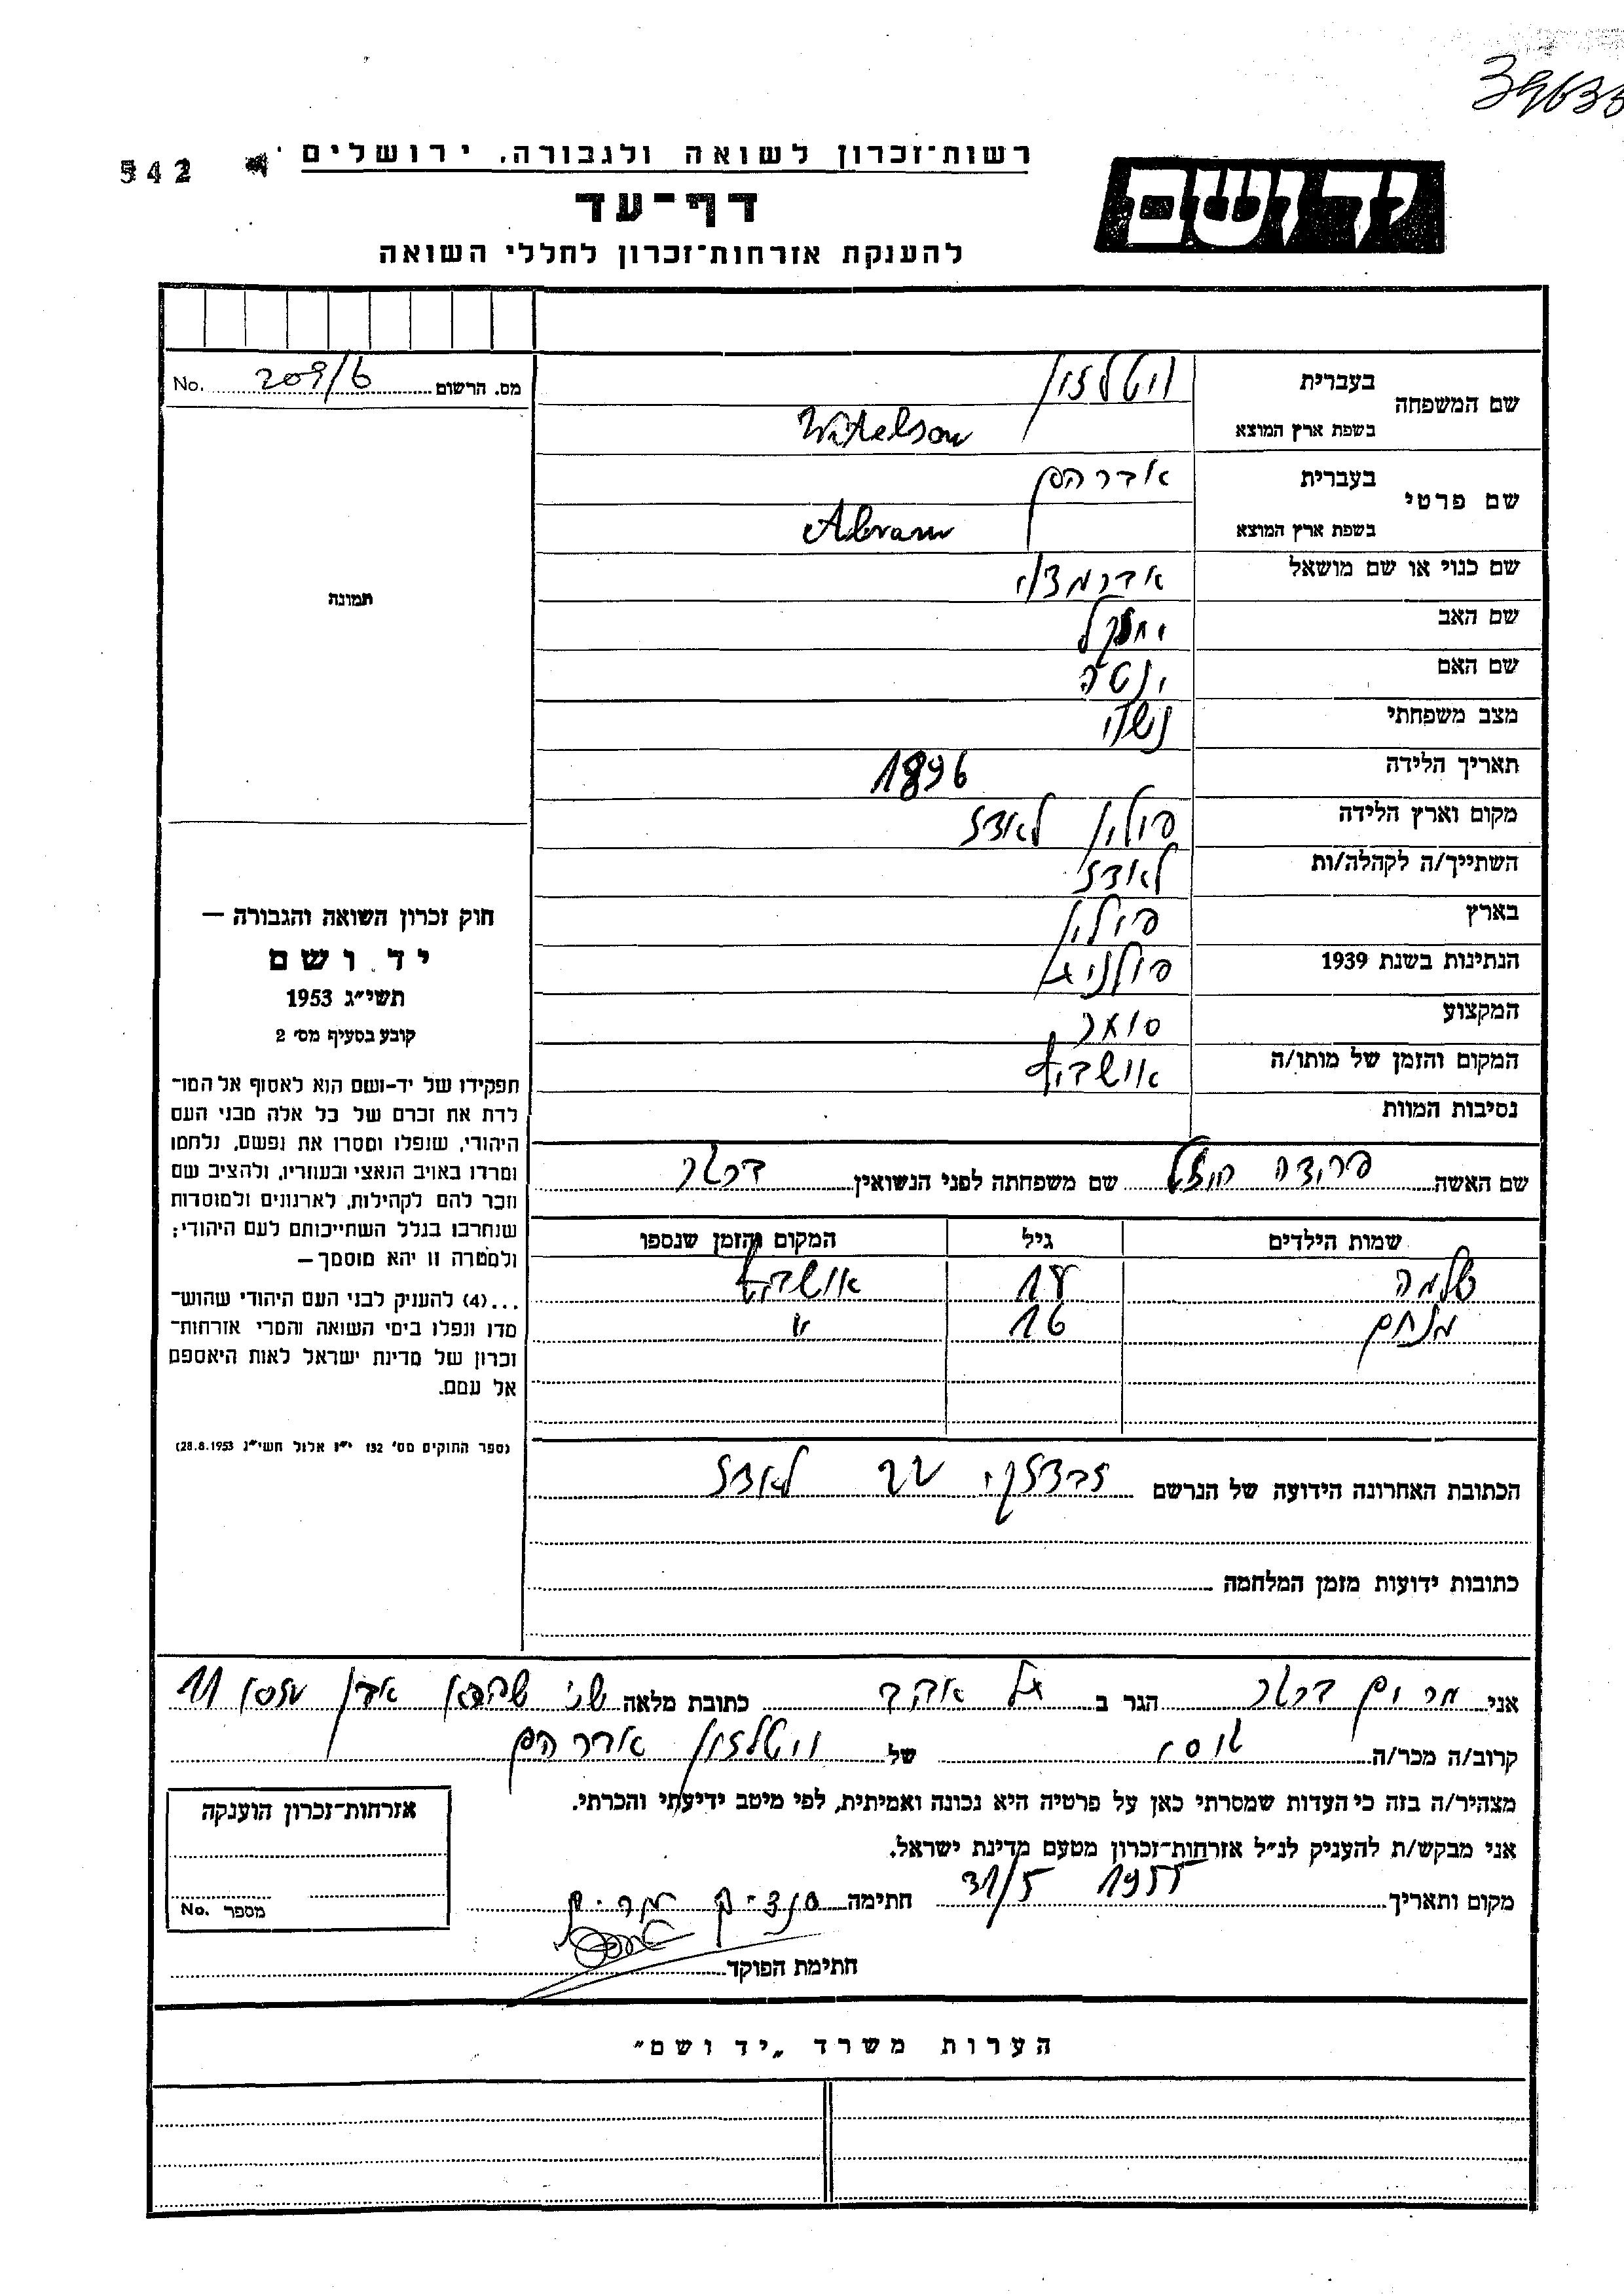 39633
542
רשות־זכרון לשואה ולגבורה, ירושלים
יד ושם
דף־עד
להענקת אזרחות־זכרון לחללי השואה
מס. הרשום 209/6 No.
שם המשפחה
בעברית ויטלזון
בשפת ארץ המוצא Witelson
שם פרטי
בעברית אברהם
בשפת ארץ המוצא Abram
שם כנוי או שם מושאל
שם האב יחזקל
שם האם ינטה
מצב משפחתי נשוי
תאריך הלידה 1896
מקום וארץ הלידה פולין לאדז
השתייך/ה לקהלה/ות לאדז
בארץ פולין
הנתינות בשנת 1939 פולנית
המקצוע סוחר
המקום והזמן של מותו/ה אושביץ
נסיבות המוות
שם האשה פרידה שם משפחתה לפני הנשואין
שמות הילדים גיל המקום והזמן שנספו
שלמה 18 אושביץ
מנחם 16 "
הכתובת האחרונה הידועה של הנרשם לאדז
כתובות ידועות מזמן המלחמה
תמונה
חוק זכרון השואה והגבורה —
יד ושם
תשי״ג 1953
קובע בסעיף מס׳ 2
תפקידו של יד-ושם הוא לאסוף אל המו־
לדת את זכרם של כל אלה מבני העם
היהודי, שנפלו ומסרו את נפשם, נלחמו
ומרדו באויב הנאצי ובעוזריו, ולהציב שם
וזכר להם לקהילות, לארגונים ולמוסדות
שנחרבו בגלל השתייכותם לעם היהודי;
ולמטרה זו יהא מוסמך—
...(4) להעניק לבני העם היהודי שהוש־
מדו ונפלו בימי השואה והמרי אזרחות־
זכרון של מדינת ישראל לאות היאספם
אל עמם.
(ספר החוקים מס׳ 132 י״ז אלול תשי״ג 28.8.1953)
אני מרים הגר ב כתובת מלאה 11
קרוב/ה מכר/ה גיסי של ויטלזון אברהם
מצהיר/ה בזה כי העדות שמסרתי כאן על פרטיה היא נכונה ואמיתית, לפי מיטב ידיעתי והכרתי.
אני מבקש/ת להעניק לנ״ל אזרחות־זכרון מטעם מדינת ישראל.
מקום ותאריך 31/5 1955 חתימה מרים
חתימת הפוקד
אזרחות־זכרון הוענקה
מספר No.
הערות משרד „יד ושם"